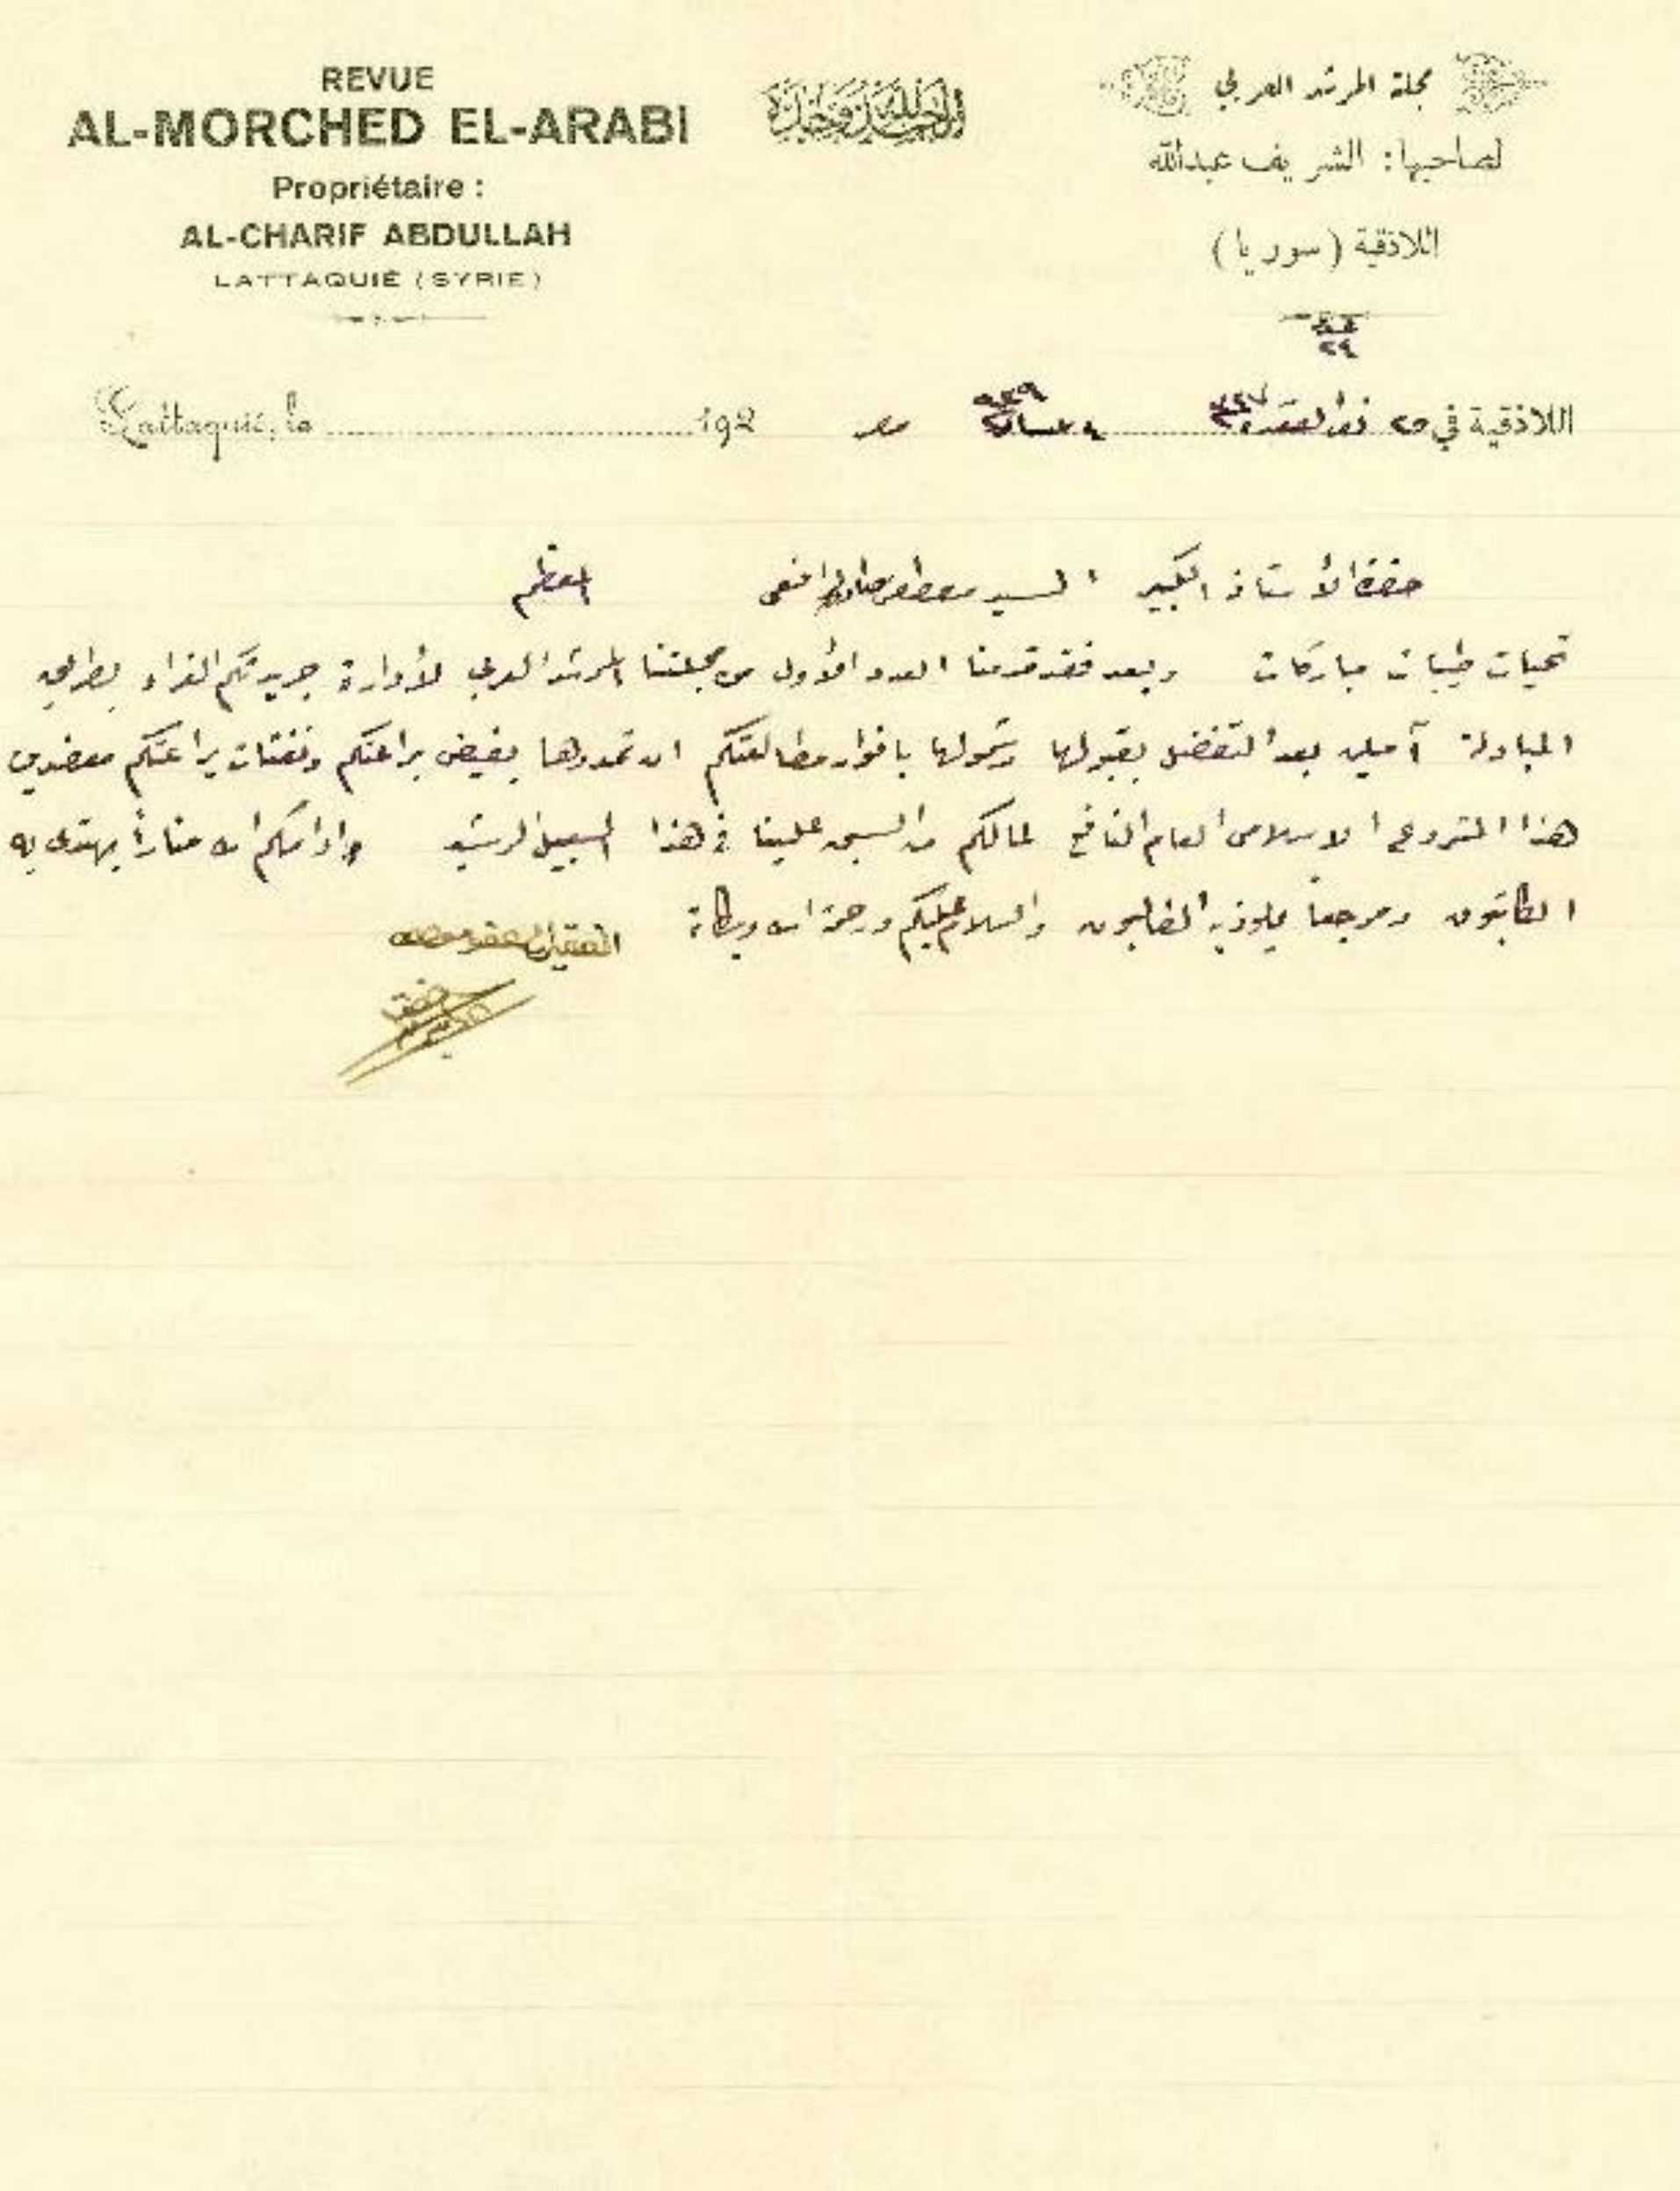 REVUE
AL-MORCHED EL-ARABI
Propriétaire :
AL-CHARIF ABDULLAH
LATTAQUIÉ (SYRIE)
الحمد لله وحده
مجلة المرشد العربي
لصاحبها: الشريف عبدالله
اللاذقية (سوريا)
عدد
٢٤
اللاذقية في ٢٥ ذي القعدة
Lattaquié, le 192
حضرة الأستاذ الكبير السيد مصطفى صادق الرافعي المعظم
تحيات طيبات مباركات وبعد فقد قدمنا العدد الأول من مجلتنا المرشد العربي لأدارة جريدتكم الغراء بطريق
المبادلة آملين بعد التفضل بقبولها وشمولها بانوار مطالعتكم ان تمدوها بفيض براعتكم ونفثات يراعتكم معضدين
هذا المشروع الاسلامي العام النافع لما لكم من السبق علينا في هذا السبيل الرشيد وادامكم الله مناراً يهتدى به
الكاتبون ومرجعاً يلوذ به الطالبون والسلام عليكم ورحمة الله وبركاته